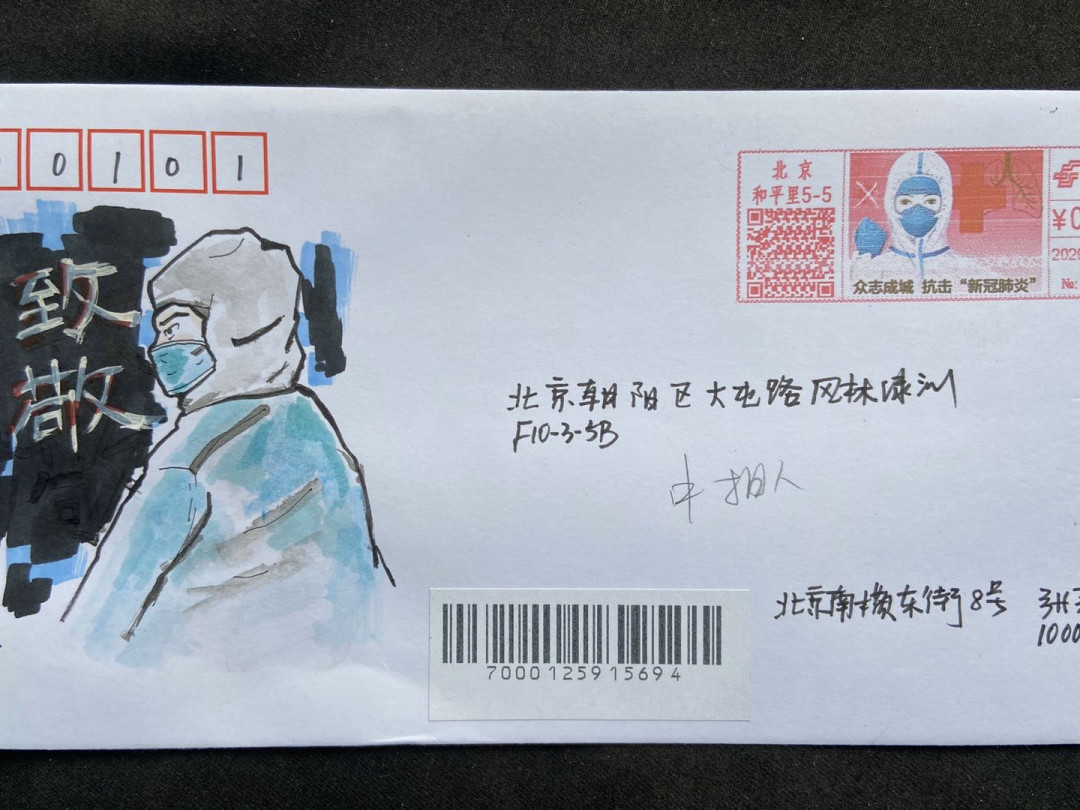 0 1 0 1
致
敬
北京
和平里5-5
¥0
2020
№:
众志成城 抗击“新冠肺炎”
北京朝阳区大屯路风林绿洲
F10-3-5B
申
人
北京南横东街8号
张
1000
7000125915694